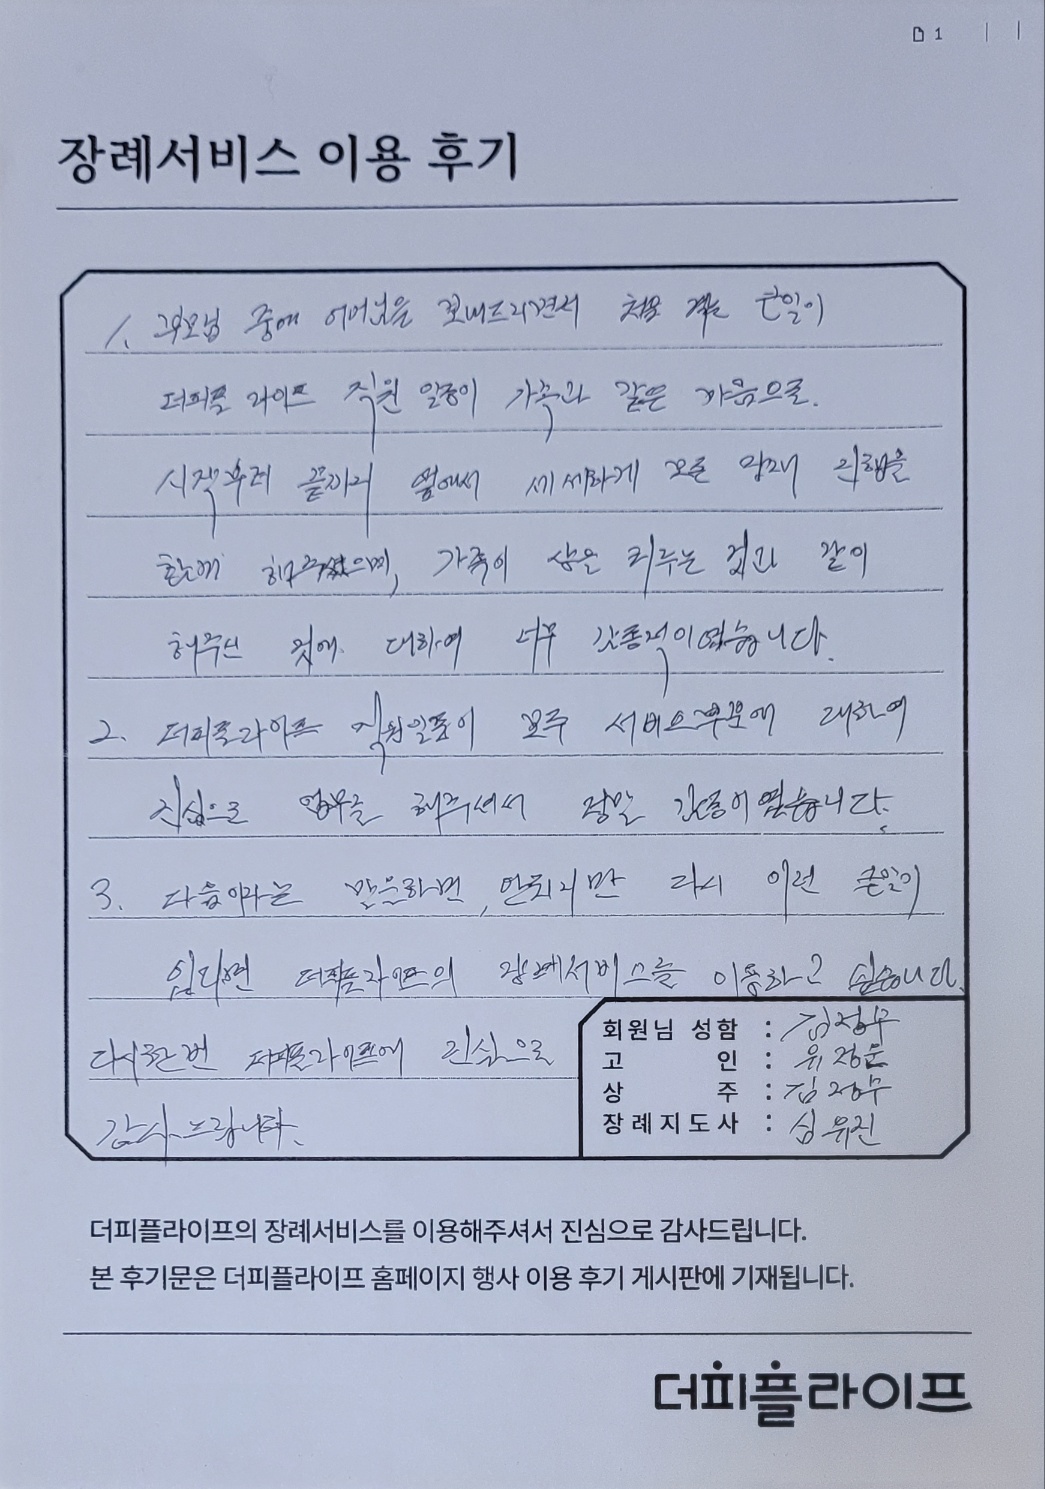 1
장례서비스 이용 후기
1. 부모님 중에 어머님을 보내드리면서 처음 겪는 큰일이
더피플 라이프 직원 일동이 가족과 같은 마음으로.
시작부터 끝까지 옆에서 세세하게 모든 장례 진행을
함께 해주셨으며, 가족이 상을 치루는 것과 같이
해주신 것에 대하여 너무 감동적이였습니다.
2. 더피플라이프 직원일동이 모두 서비스부분에 대하여
진심으로 업무를 해주셔서 정말 감동이였습니다.
3. 다음이라는 말은하면, 안되지만 다시 이런 큰일이
있다면 더피플라이프의 장례서비스를 이용하고 싶습니다.
다시한번 더피플라이프에 진심으로
감사드립니다.
회원님 성함 : 김정무
고 인 : 유정운
상 주 : 김정무
장례지도사 : 심유진
더피플라이프의 장례서비스를 이용해주셔서 진심으로 감사드립니다.
본 후기문은 더피플라이프 홈페이지 행사 이용 후기 게시판에 기재됩니다.
더피플라이프